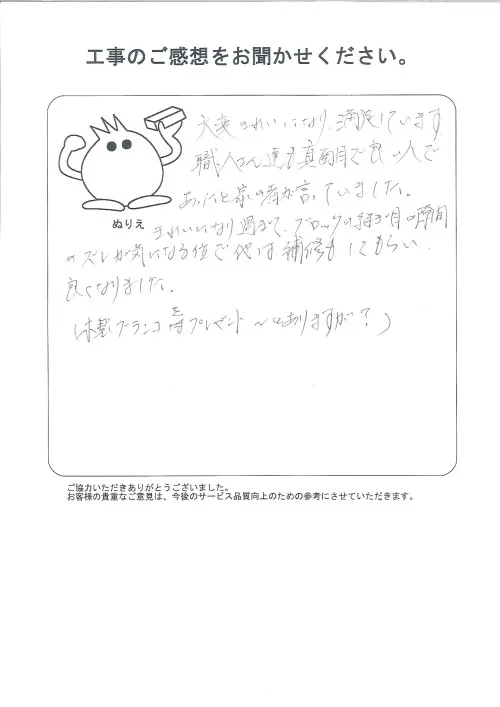 工事のご感想をお聞かせください。
大変きれいになり、満足しています
職人さん達も真面目で良い人で
あったと家の者が言っていました。
ぬりえ
きれいになり過ぎて、ブロックの継ぎ目の隙間
のズレが気になる位で他は、補修もしてもらい、
良くなりました。
(木製ブランコをプレゼント～とありますが?)
ご協力いただきありがとうございました。
お客様の貴重なご意見は、今後のサービス品質向上のための参考にさせていただきます。